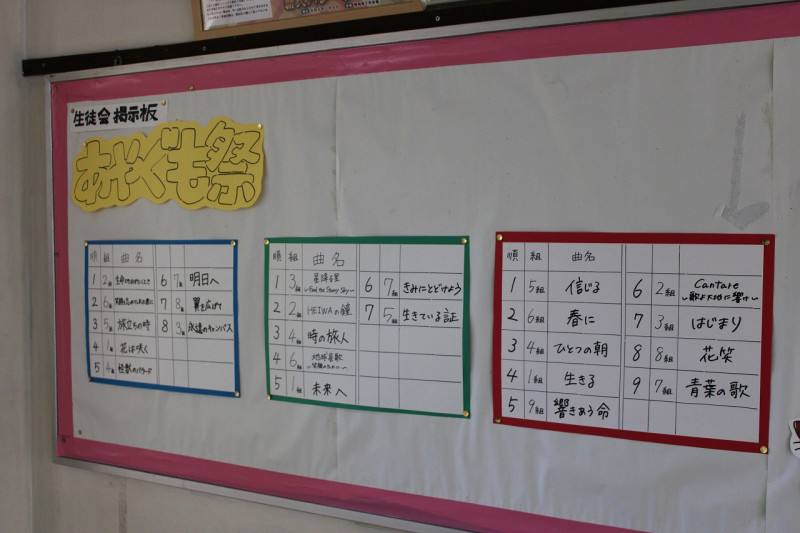 生徒会 掲示板
あかぐも祭
順 組 曲名
1 2組
2 6組
3 5組 旅立ちの時
4 1組 花は咲く
5 4組 怪獣のバラード
6 7組 明日へ
7 8組 翼を広げて
8 3組 永遠のキャンバス
順 組 曲名
1 3組 星降る里
~Feel the Starry Sky~
2 2組 HEIWAの鐘
3 4組 時の旅人
4 6組 地球星歌
~笑顔のために~
5 1組 未来へ
6 7組 きみにとどけよう
7 5組 生きている証
順 組 曲名
1 5組 信じる
2 6組 春に
3 4組 ひとつの朝
4 1組 生きる
5 9組 響きあう命
6 2組 Cantare
~歌よ大地に響け~
7 3組 はじまり
8 8組 花笑
9 7組 青葉の歌